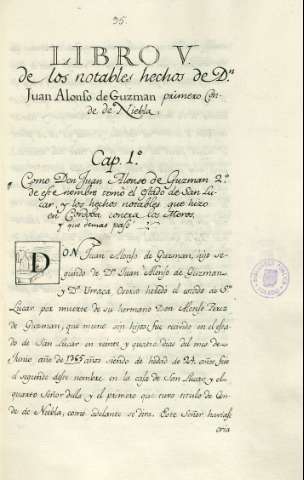 95.
LIBRO V
de los notables hechos de D.n
Juan Alonso de Guzman primero Con-
de de Niebla.
Cap. 1.º
Como Don Juan Alonso de Guzman 2.º
de este nombre tomó el estado de San Lu-
car, y los hechos notables que hizo
en Cordoba contra los Moros,
y que demas pasó
DON Juan Alonso de Guzman, hijo se-
gundo de D.n Juan Alonso de Guzman
y D.a Urraca Osorio heredó el estado de S.n
Lucar por muerte de su hermano Don Alonso Perez
de Guzman, que murió sin hijos fue recivido en el esta-
do de San Lucar en veinte y quatro dias del mes de
Junio año de 1365 años siendo de hedad de 24 años, fue
el segundo deste nombre en la casa de San Lucar y el
quarto Señor della y el primero que tuvo titulo de Con-
de de Niebla, como adelante se dira. Este Señor
oria